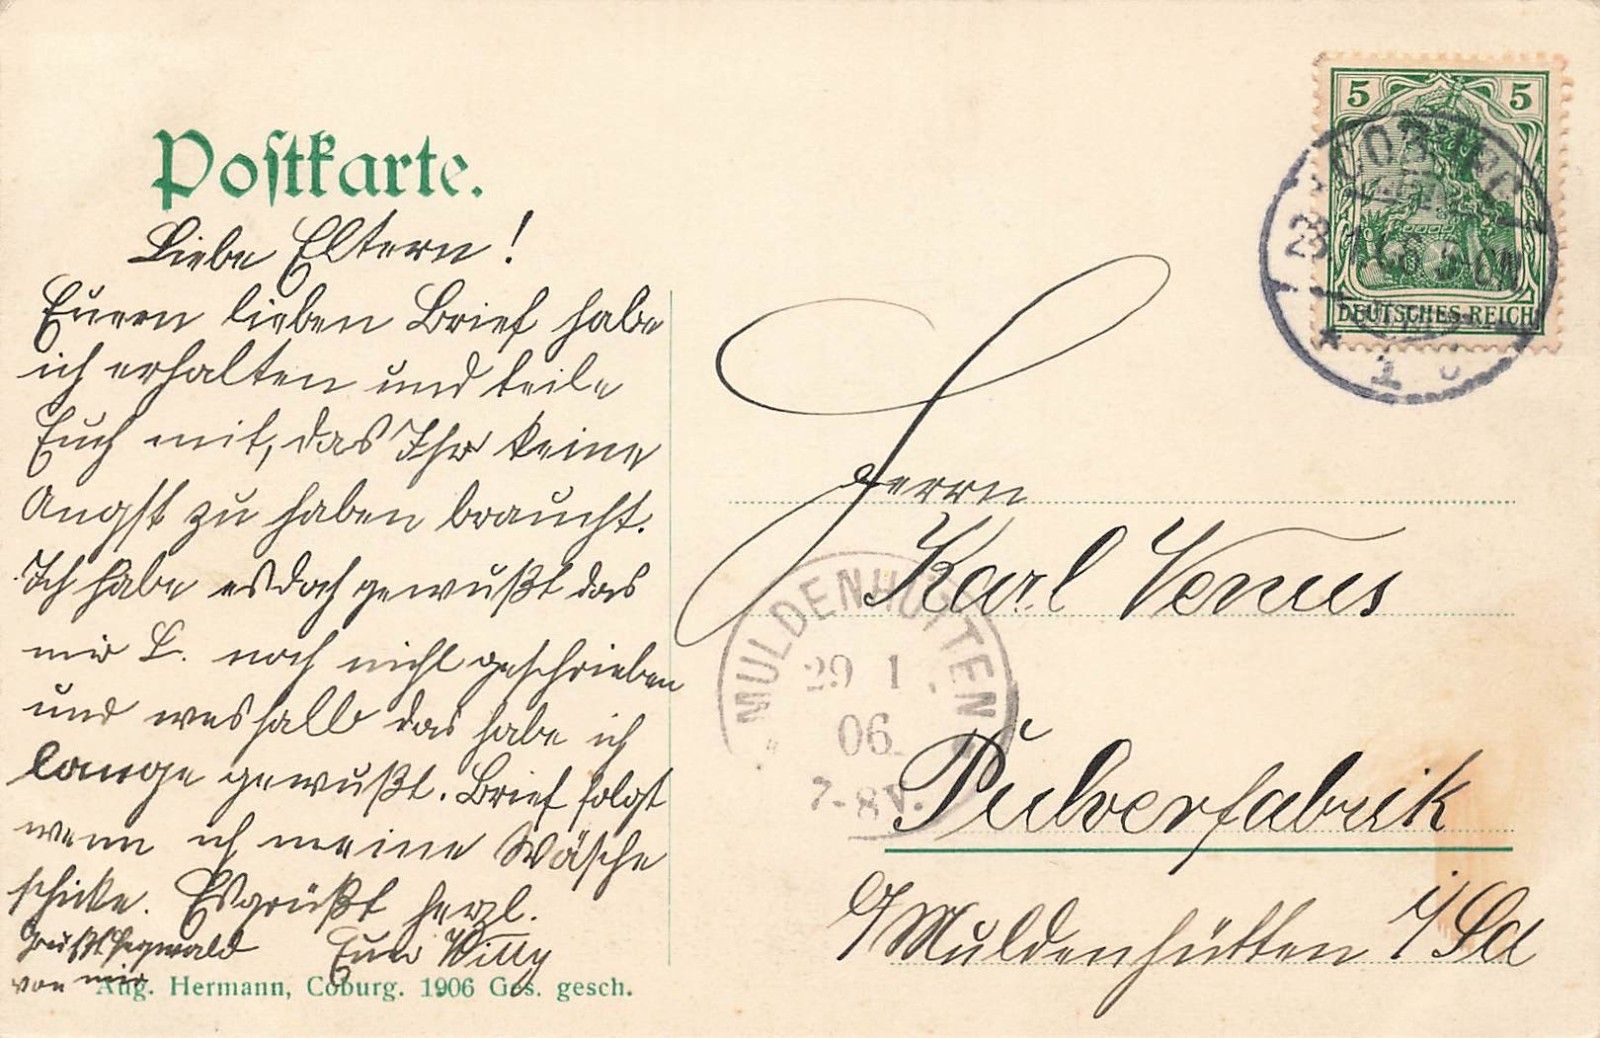 Postkarte.
Liebe Eltern!
Euern lieben Brief habe
ich erhalten und teile
Euch mit, das Ihr keine
Angst zu haben braucht.
Ich habe es doch gewußt das
mir L. noch nicht geschrieben
und weshalb das habe ich
lange gewußt. Brief folgt
wenn ich meine Wäsche
schicke. Es grüßt herzl.
Euer Willy
Grüßt
von mir
Aug. Hermann, Coburg. 1906 Ges. gesch.
5 5
DEUTSCHES REICH
COBURG
28.1.06
1
Herrn
Karl Venus
MULDENHÜTTEN
29 1
06
7-8V.
Pulverfabrik
b/Muldenhütten i/Sa